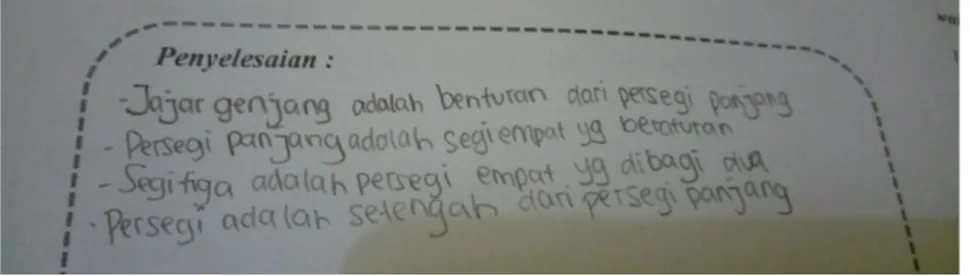 Penyelesaian :
- Jajar genjang adalah benturan dari persegi panjang
- Persegi panjang adalah segi empat yg beraturan
- Segitiga adalah persegi empat yg dibagi dua
- Persegi adalah setengah dari persegi panjang